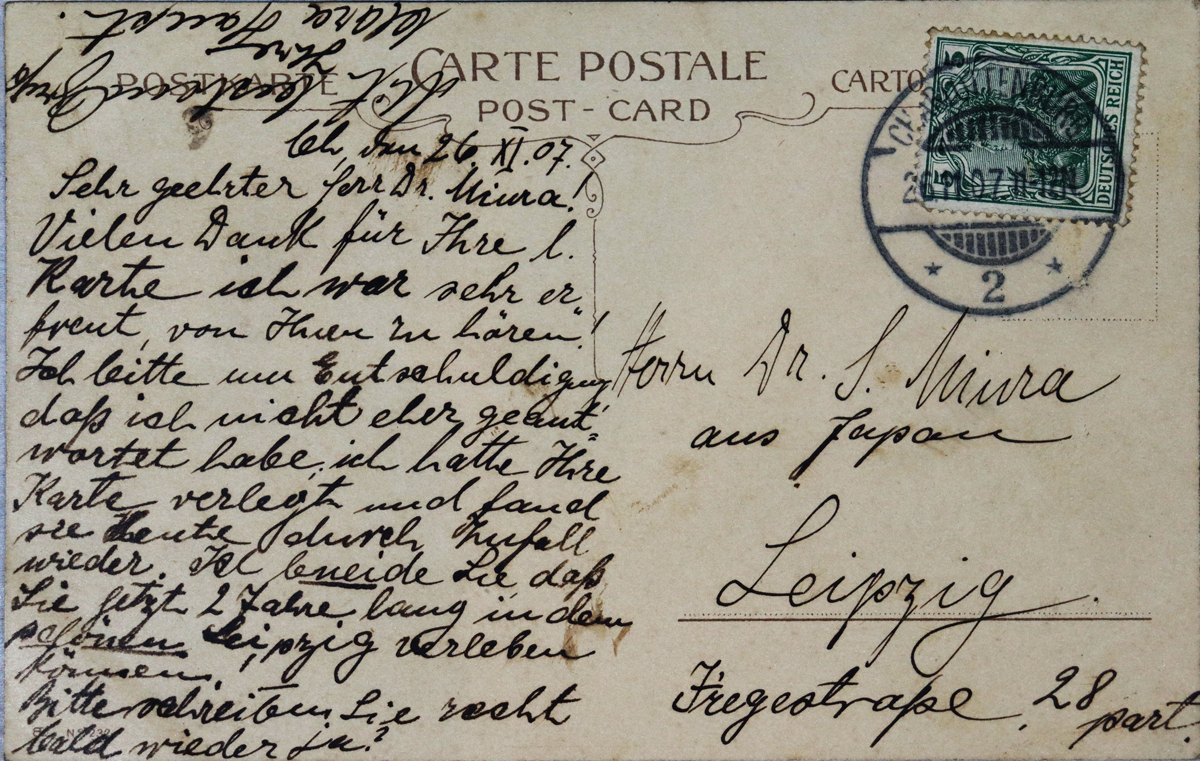 POSTKARTE
CARTE POSTALE
CARTO
POST-CARD
5 5
DEUTSCHES REICH
CHARLOTTENBURG
26.11.07.11-12N
* 2 *
Ch, den 26. XI. 07.
Sehr geehrter Herr Dr. Miura!
Vielen Dank für Ihre l.
Karte ich war sehr er
freut, von Ihnen zu hören!
Ich bitte um Entschuldigung,
daß ich nicht eher geant=
wortet habe, ich hatte Ihre
Karte verlegt und fand
sie heute durch Zufall
wieder. Ich beneide Sie daß
Sie jetzt 2 Jahre lang in dem
schönen Leipzig verleben
können.
Bitte schreiben Sie recht
bald wieder ja?
Mit herzlichem Gruß
Ihre
Clara Haupt.
Herrn Dr. S. Miura
aus Japan
Leipzig.
Fregestraße 28
part.